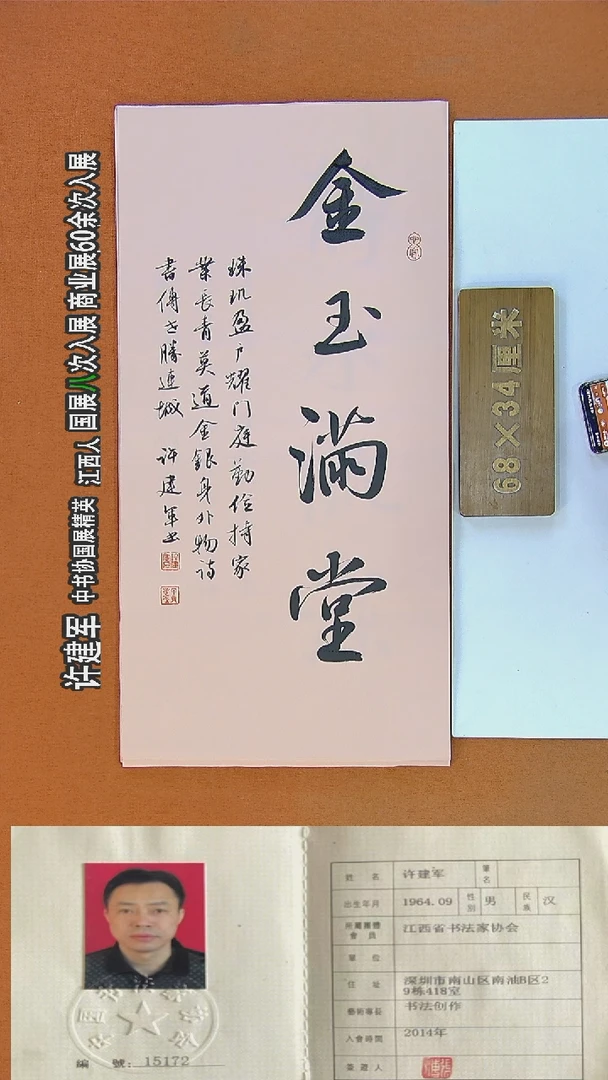 许建军 中书协国展精英 江西人 国展八次入展 商业展60余次入展
金玉满堂
珠玑盈户耀门庭勤俭持家
业长青莫道金银身外物诗
书传世胜连城 许建军书
68×34厘米
姓名 许建军 笔名
出生年月 1964.09 性别 男 民族 汉
所属团体會員 江西省书法家协会
單位
住址 深圳市南山区南油B区2
9栋418室
藝術專長 书法创作
入會時間 2014年
编號：15172